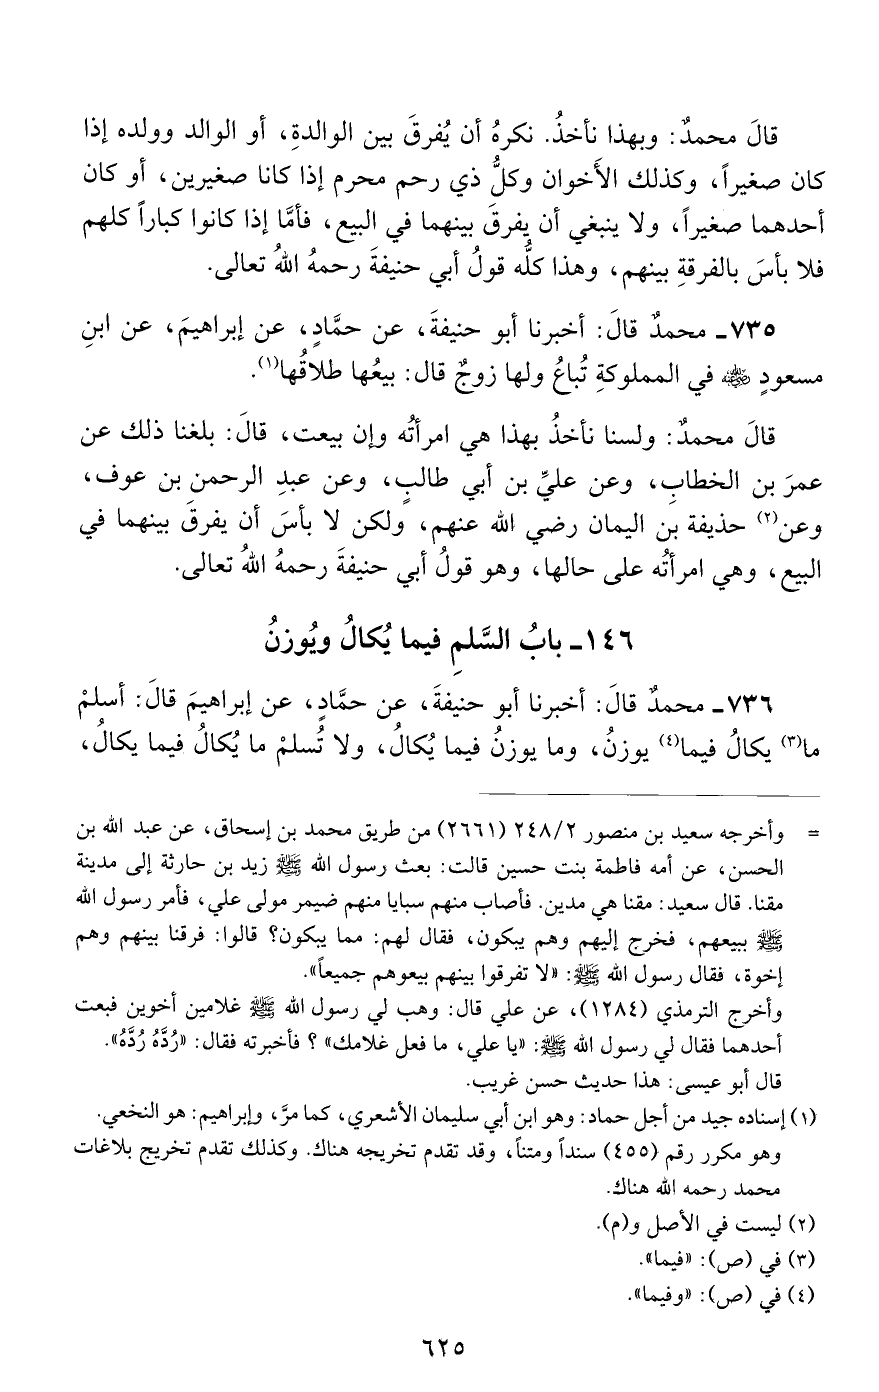 قالَ محمدٌ: وبهذا نأخذُ. نكرهُ أن يُفرقَ بين الوالدةِ، أو الوالد وولده إذا
كان صغيراً، وكذلك الأَخوان وكلُّ ذي رحم محرم إذا كانا صغيرين، أو كان
أحدهما صغيراً، ولا ينبغي أن يفرقَ بينهما في البيع، فأمَّا إذا كانوا كباراً كلهم
فلا بأسَ بالفرقةِ بينهم، وهذا كلُّه قولُ أبي حنيفةَ رحمهُ اللهُ تعالى.
٧٣٥ـ محمدٌ قالَ: أخبرنا أبو حنيفةَ، عن حمَّادٍ، عن إبراهيمَ، عن ابنِ
مسعودٍ رضي الله عنه في المملوكةِ تُباعُ ولها زوجٌ قال: بيعُها طلاقُها(١).
قالَ محمدٌ: ولسنا نأخذُ بهذا هي امرأتُه وإن بيعت، قالَ: بلغنا ذلك عن
عمرَ بن الخطابِ، وعن عليِّ بن أبي طالبٍ، وعن عبدِ الرحمن بن عوف،
وعن(٢) حذيفة بن اليمان رضي الله عنهم، ولكن لا بأسَ أن يفرقَ بينهما في
البيع، وهي امرأتُه على حالها، وهو قولُ أبي حنيفةَ رحمهُ اللهُ تعالى.
١٤٦ـ بابُ السَّلمِ فيما يُكالُ ويُوزنُ
٧٣٦ـ محمدٌ قالَ: أخبرنا أبو حنيفةَ، عن حمَّادٍ، عن إبراهيمَ قالَ: أسلمْ
ما(٣) يكالُ فيما(٤) يوزنُ، وما يوزنُ فيما يُكالُ، ولا تُسلمْ ما يُكالُ فيما يكالُ،
= وأخرجه سعيد بن منصور ٢٤٨/٢ (٢٦٦١) من طريق محمد بن إسحاق، عن عبد الله بن
الحسن، عن أمه فاطمة بنت حسين قالت: بعث رسول الله ﷺ زيد بن حارثة إلى مدينة
مقنا. قال سعيد: مقنا هي مدين. فأصاب منهم سبايا منهم ضيمر مولى علي، فأمر رسول الله
ﷺ ببيعهم، فخرج إليهم وهم يبكون، فقال لهم: مما يبكون؟ قالوا: فرقنا بينهم وهم
إخوة، فقال رسول الله ﷺ: «لا تفرقوا بينهم بيعوهم جميعاً».
وأخرج الترمذي (١٢٨٤)، عن علي قال: وهب لي رسول الله ﷺ غلامين أخوين فبعت
أحدهما فقال لي رسول الله ﷺ: «يا علي، ما فعل غلامك» ؟ فأخبرته فقال: «رُدَّهُ رُدَّهُ».
قال أبو عيسى: هذا حديث حسن غريب.
(١) إسناده جيد من أجل حماد: وهو ابن أبي سليمان الأشعري، كما مرَّ، وإبراهيم: هو النخعي.
وهو مكرر رقم (٤٥٥) سنداً ومتناً، وقد تقدم تخريجه هناك. وكذلك تقدم تخريج بلاغات
محمد رحمه الله هناك.
(٢) ليست في الأصل و(م).
(٣) في (ص): «فيما».
(٤) في (ص): «وفيما».
٦٢٥